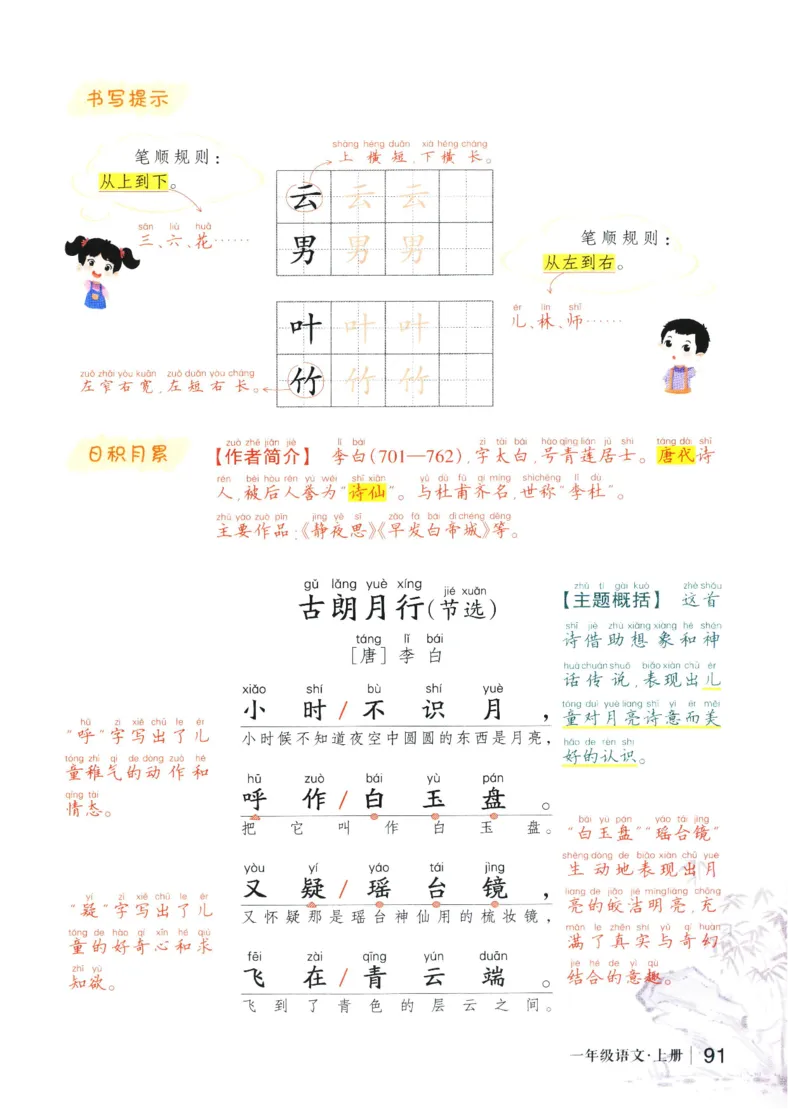 书写提示
shàng héng duǎn xià héng cháng
上横短,下横长。
笔顺规则:
从上到下。
sān liù huā
三、六、花……
云 云 云
男 男 男
笔顺规则:
从左到右。
ér lín shī
儿、林、师……
叶 叶 叶
竹 竹 竹
zuǒ zhǎi yòu kuān zuǒ duǎn yòu cháng
左窄右宽,左短右长。
日积月累
zuò zhě jiǎn jiè lǐ bái zì tài bái hào qīng lián jū shì táng dài shī
【作者简介】 李白(701—762),字太白,号青莲居士。唐代诗
rén bèi hòu rén yù wéi shī xiān yǔ dù fǔ qí míng shì chēng lǐ dù
人,被后人誉为“诗仙”。与杜甫齐名,世称“李杜”。
zhǔ yào zuò pǐn jìng yè sī zǎo fā bái dì chéng děng
主要作品:《静夜思》《早发白帝城》等。
gǔ lǎng yuè xíng jié xuǎn
古朗月行(节选)
táng lǐ bái
[唐] 李白
xiǎo shí bù shí yuè
小时/不识月,
小时候不知道夜空中圆圆的东西是月亮,
hū zuò bái yù pán
呼作/白玉盘。
把它叫作白玉盘。
yòu yí yáo tái jìng
又疑/瑶台镜,
又怀疑那是瑶台神仙用的梳妆镜,
fēi zài qīng yún duān
飞在/青云端。
飞到了青色的层云之间。
hū zì xiě chū le ér
“呼”字写出了儿
tóng zhì qì de dòng zuò hé
童稚气的动作和
qíng tài
情态。
yí zì xiě chū le ér
“疑”字写出了儿
tóng de hào qí xīn hé qiú
童的好奇心和求
zhī yù
知欲。
zhǔ tí gài kuò zhè shǒu
【主题概括】 这首
shī jiè zhù xiǎng xiàng hé shén
诗借助想象和神
huà chuán shuō biǎo xiàn chū ér
话传说,表现出儿
tóng duì yuè liang shī yì ér měi
童对月亮诗意而美
hǎo de rèn shi
好的认识。
bái yù pán yáo tái jìng
“白玉盘”“瑶台镜”
shēng dòng de biǎo xiàn chū yuè
生动地表现出月
liang de jiǎo jié míng liàng chōng
亮的皎洁明亮,充
mǎn le zhēn shí yǔ qí huàn
满了真实与奇幻
jié hé de yì qù
结合的意趣。
一年级语文·上册 91